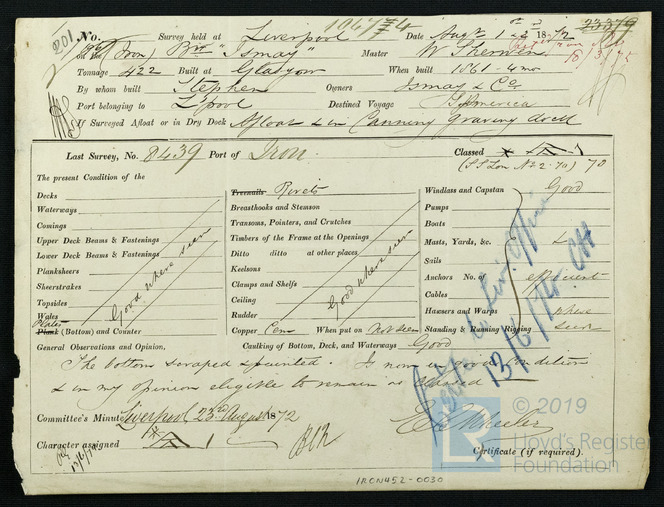 201 No. Survey held at Liverpool Date Augt 1 1872
on the (Iron) Bn "Ismay" Master W Sherwen
Tonnage 422 Built at Glasgow When built 1861-4 mo
By whom built Stephen Owners Ismay & Co
Port belonging to L'pool Destined Voyage S. America
If Surveyed Afloat or in Dry Dock Afloat & in Canning Graving dock
Last Survey, No. 8439 Port of Iron Classed A 1
(SS Lon No 2. 70) 70
The present Condition of the
Decks
Waterways
Comings
Upper Deck Beams & Fastenings
Lower Deck Beams & Fastenings
Planksheers
Sheerstrakes
Topsides
Wales
Plates
Plank (Bottom) and Counter
Good where seen
Treenails Rivets
Breasthooks and Stemson
Transoms, Pointers, and Crutches
Timbers of the Frame at the Openings
Ditto ditto at other places
Keelsons
Clamps and Shelfs
Ceiling
Rudder
Good where seen
Copper Cem When put on not seen
Windlass and Capstan Good
Pumps
Boats
Masts, Yards, &c. &
Sails
Anchors No. of efficient
Cables
Hawsers and Warps where
Standing & Running Rigging seen
13/6/74
General Observations and Opinion. Caulking of Bottom, Deck, and Waterways Good
The bottom scraped & painted. Is now in good Condition
& in my opinion eligible to remain as classed
Committee's Minute Liverpool 23rd August 1872
Character assigned A 1
13/6/74
Certificate (if required).
© 2019
Lloyd's Register
Foundation
IRON452-0030